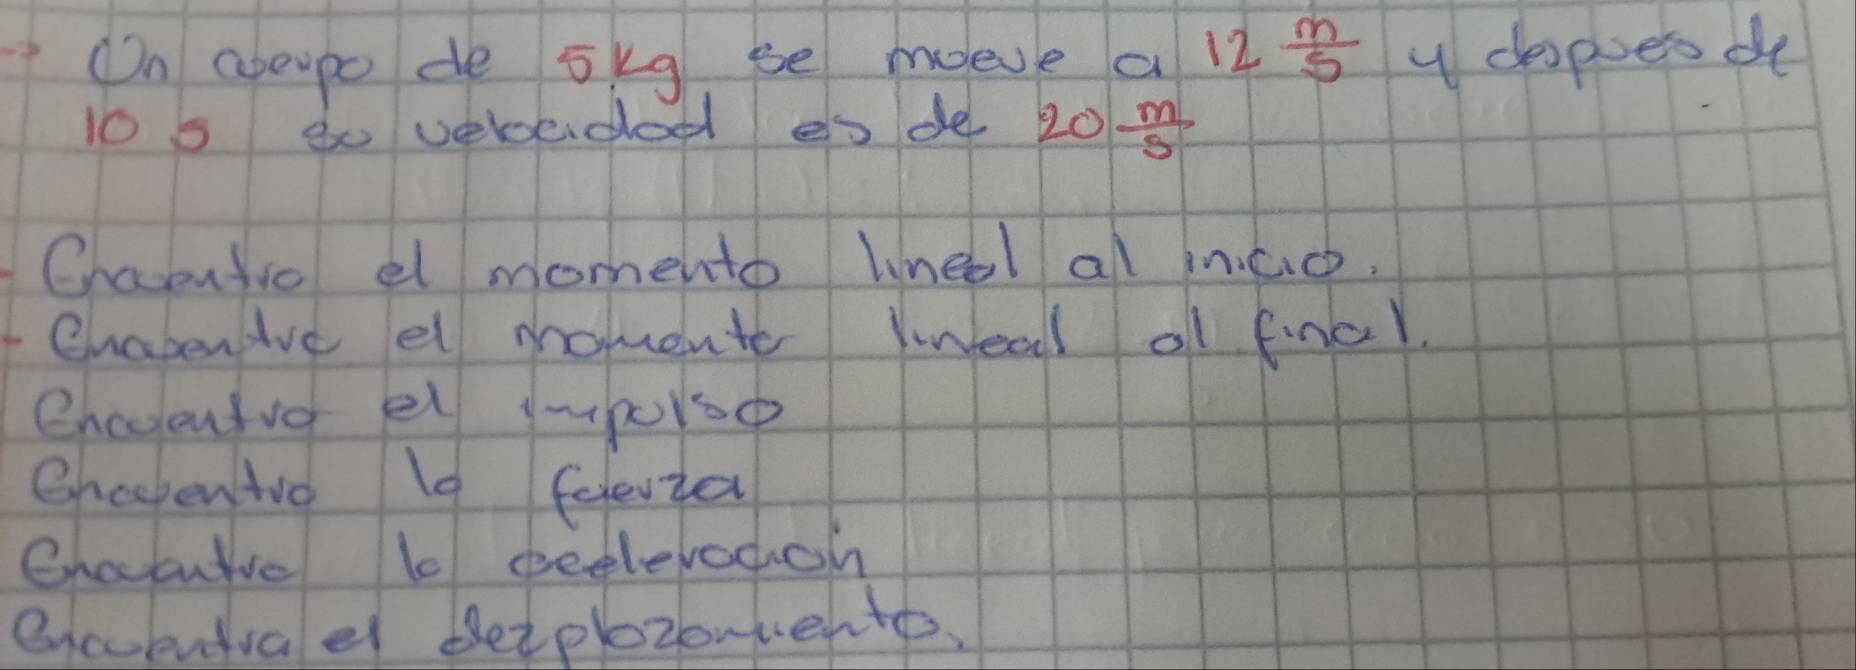 → Un cuerpo de 5 kg se mueve a 12 m/s y despues de
10 s su velocidad es de 20 m/s
- Encuentra el momento lineal al inicio.
- Encuentra el momento lineal al final.
Encuentra el impulso
Encuentra la fuerza
Encuentra la aceleracion
Encuentra el dezplazamiento.